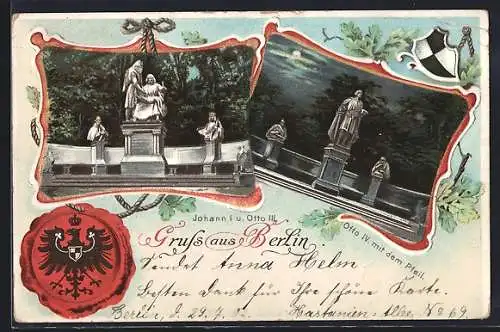 Johann I u. Otto III.
Otto IV. mit dem Pfeil.
Gruß aus Berlin.
Sendet Anna Helm.
Besten Dank für Ihre schöne Karte.
Berlin, d. 29.7. Kastanien-Allee No 69